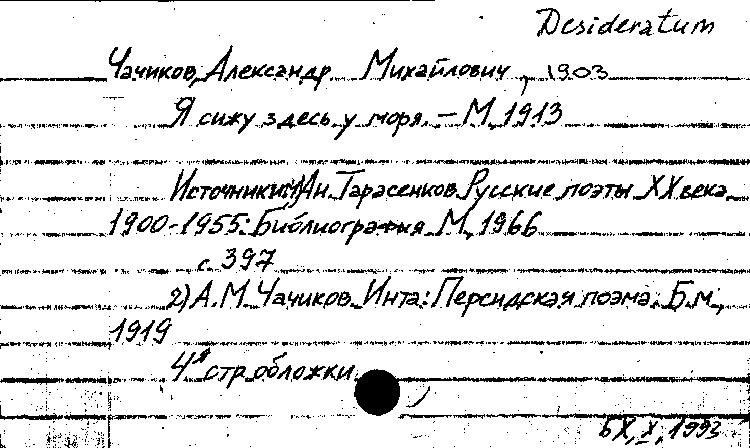 Desideratum
Чачиков, Александр Михайлович, 1903
Я сижу здесь у моря. – М, 1913
Источники: 1) Ан. Тарасенков Русские поэты XX века
1900-1955: Библиография М, 1966
с. 397
2) А. М. Чачиков Инта: Персидская поэма. Б.м,
1919
4я стр обложки
X, 1993